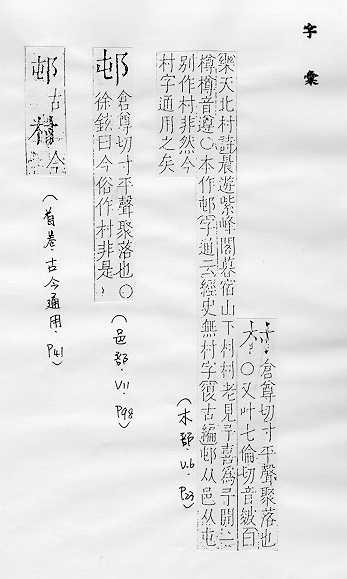 字彙
村 倉尊切寸平聲聚落也
○又叶七倫切音皴白
樂天北村詩晨遊紫峰閣暮宿山下村村老見予喜爲予開一
樽樽音遵○本作邨字通云經史無村字復古編邨从邑从屯
別作村非然今
村字通用之矣
(木部.V.6 P.23)
邨 倉尊切寸平聲聚落也○
徐鉉曰今俗作村非是
(邑部.V.11 P.98)
邨古村今
(首卷古今通用.P.41)